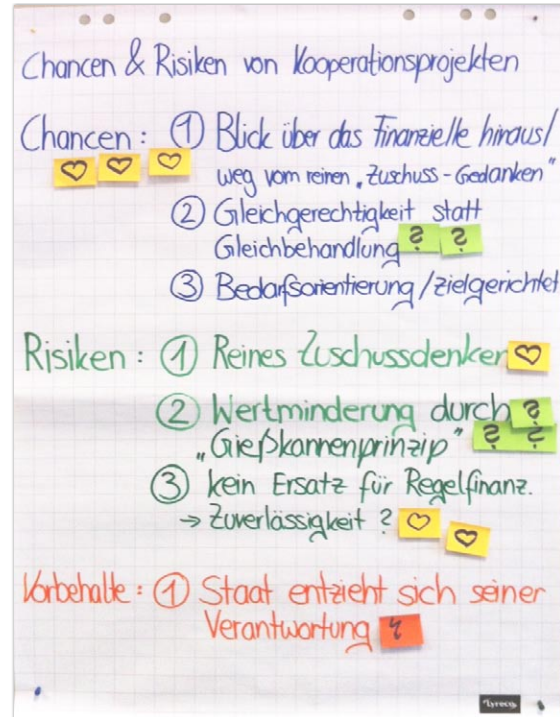 Chancen & Risiken von Kooperationsprojekten
Chancen: ① Blick über das Finanzielle hinaus/
weg vom reinen „Zuschuss-Gedanken"
② Gleichgerechtigkeit statt
Gleichbehandlung ? ?
③ Bedarfsorientierung/zielgerichtet
Risiken: ① Reines Zuschussdenken
② Wertminderung durch ?
„Gießkannenprinzip" ? ?
③ kein Ersatz für Regelfinanz.
→ Zuverlässigkeit ?
Vorbehalte: ① Staat entzieht sich seiner
Verantwortung